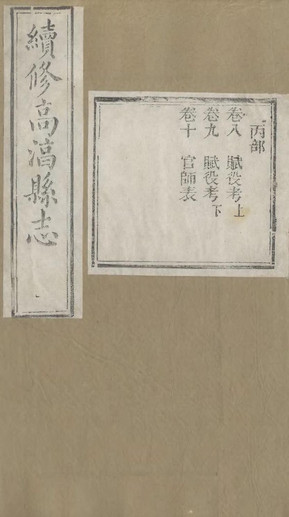 續修高淳縣志
丙部
卷八 賦役考上
卷九 賦役考下
卷十 官師表